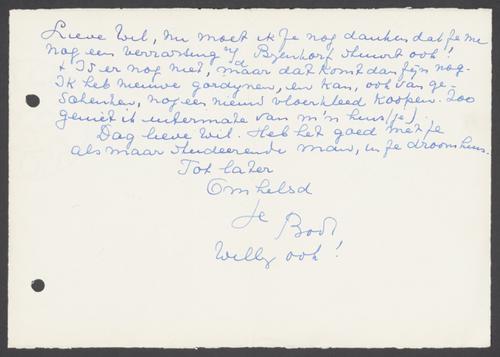 Lieve Wil, nu moet ik je nog danken dat je me
nog een verrassing v/d Bijenkorf stuurt ook!
+ Is er nog niet, maar dat komt dan fijn nog.
Ik heb nieuwe gordynen, en kan, ook van ge-
schenken, nog een nieuw vloerkleed koopen. Zoo
geniet ik uitermate van m'n huis(je).
Dag lieve Wil. Heb het goed met je
als maar studeerende man, in je droomhuis.
Tot later
Omhelsd
Je
Willy ook!